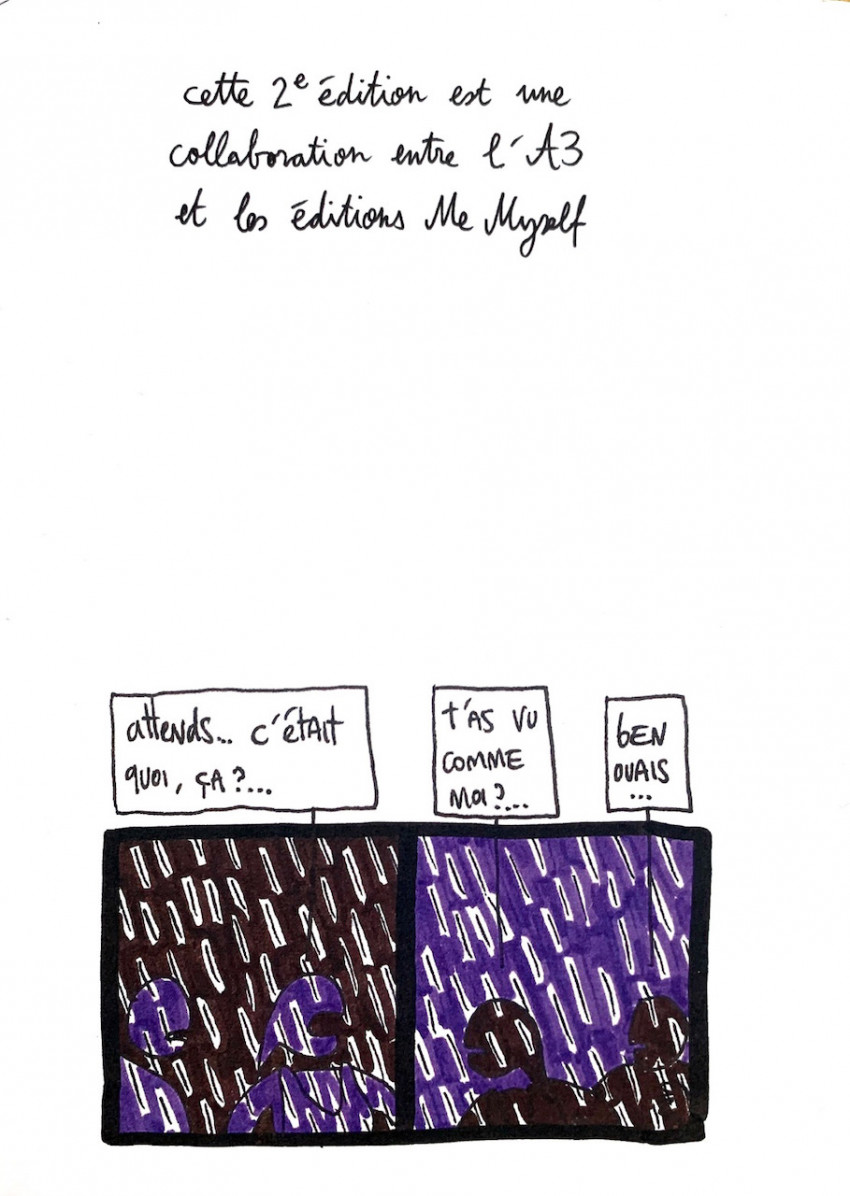 cette 2e édition est une
collaboration entre l'A3
et les éditions Me Myself
attends... c'était
quoi, ça?...
t'as vu
comme
moi?...
ben
ouais
...